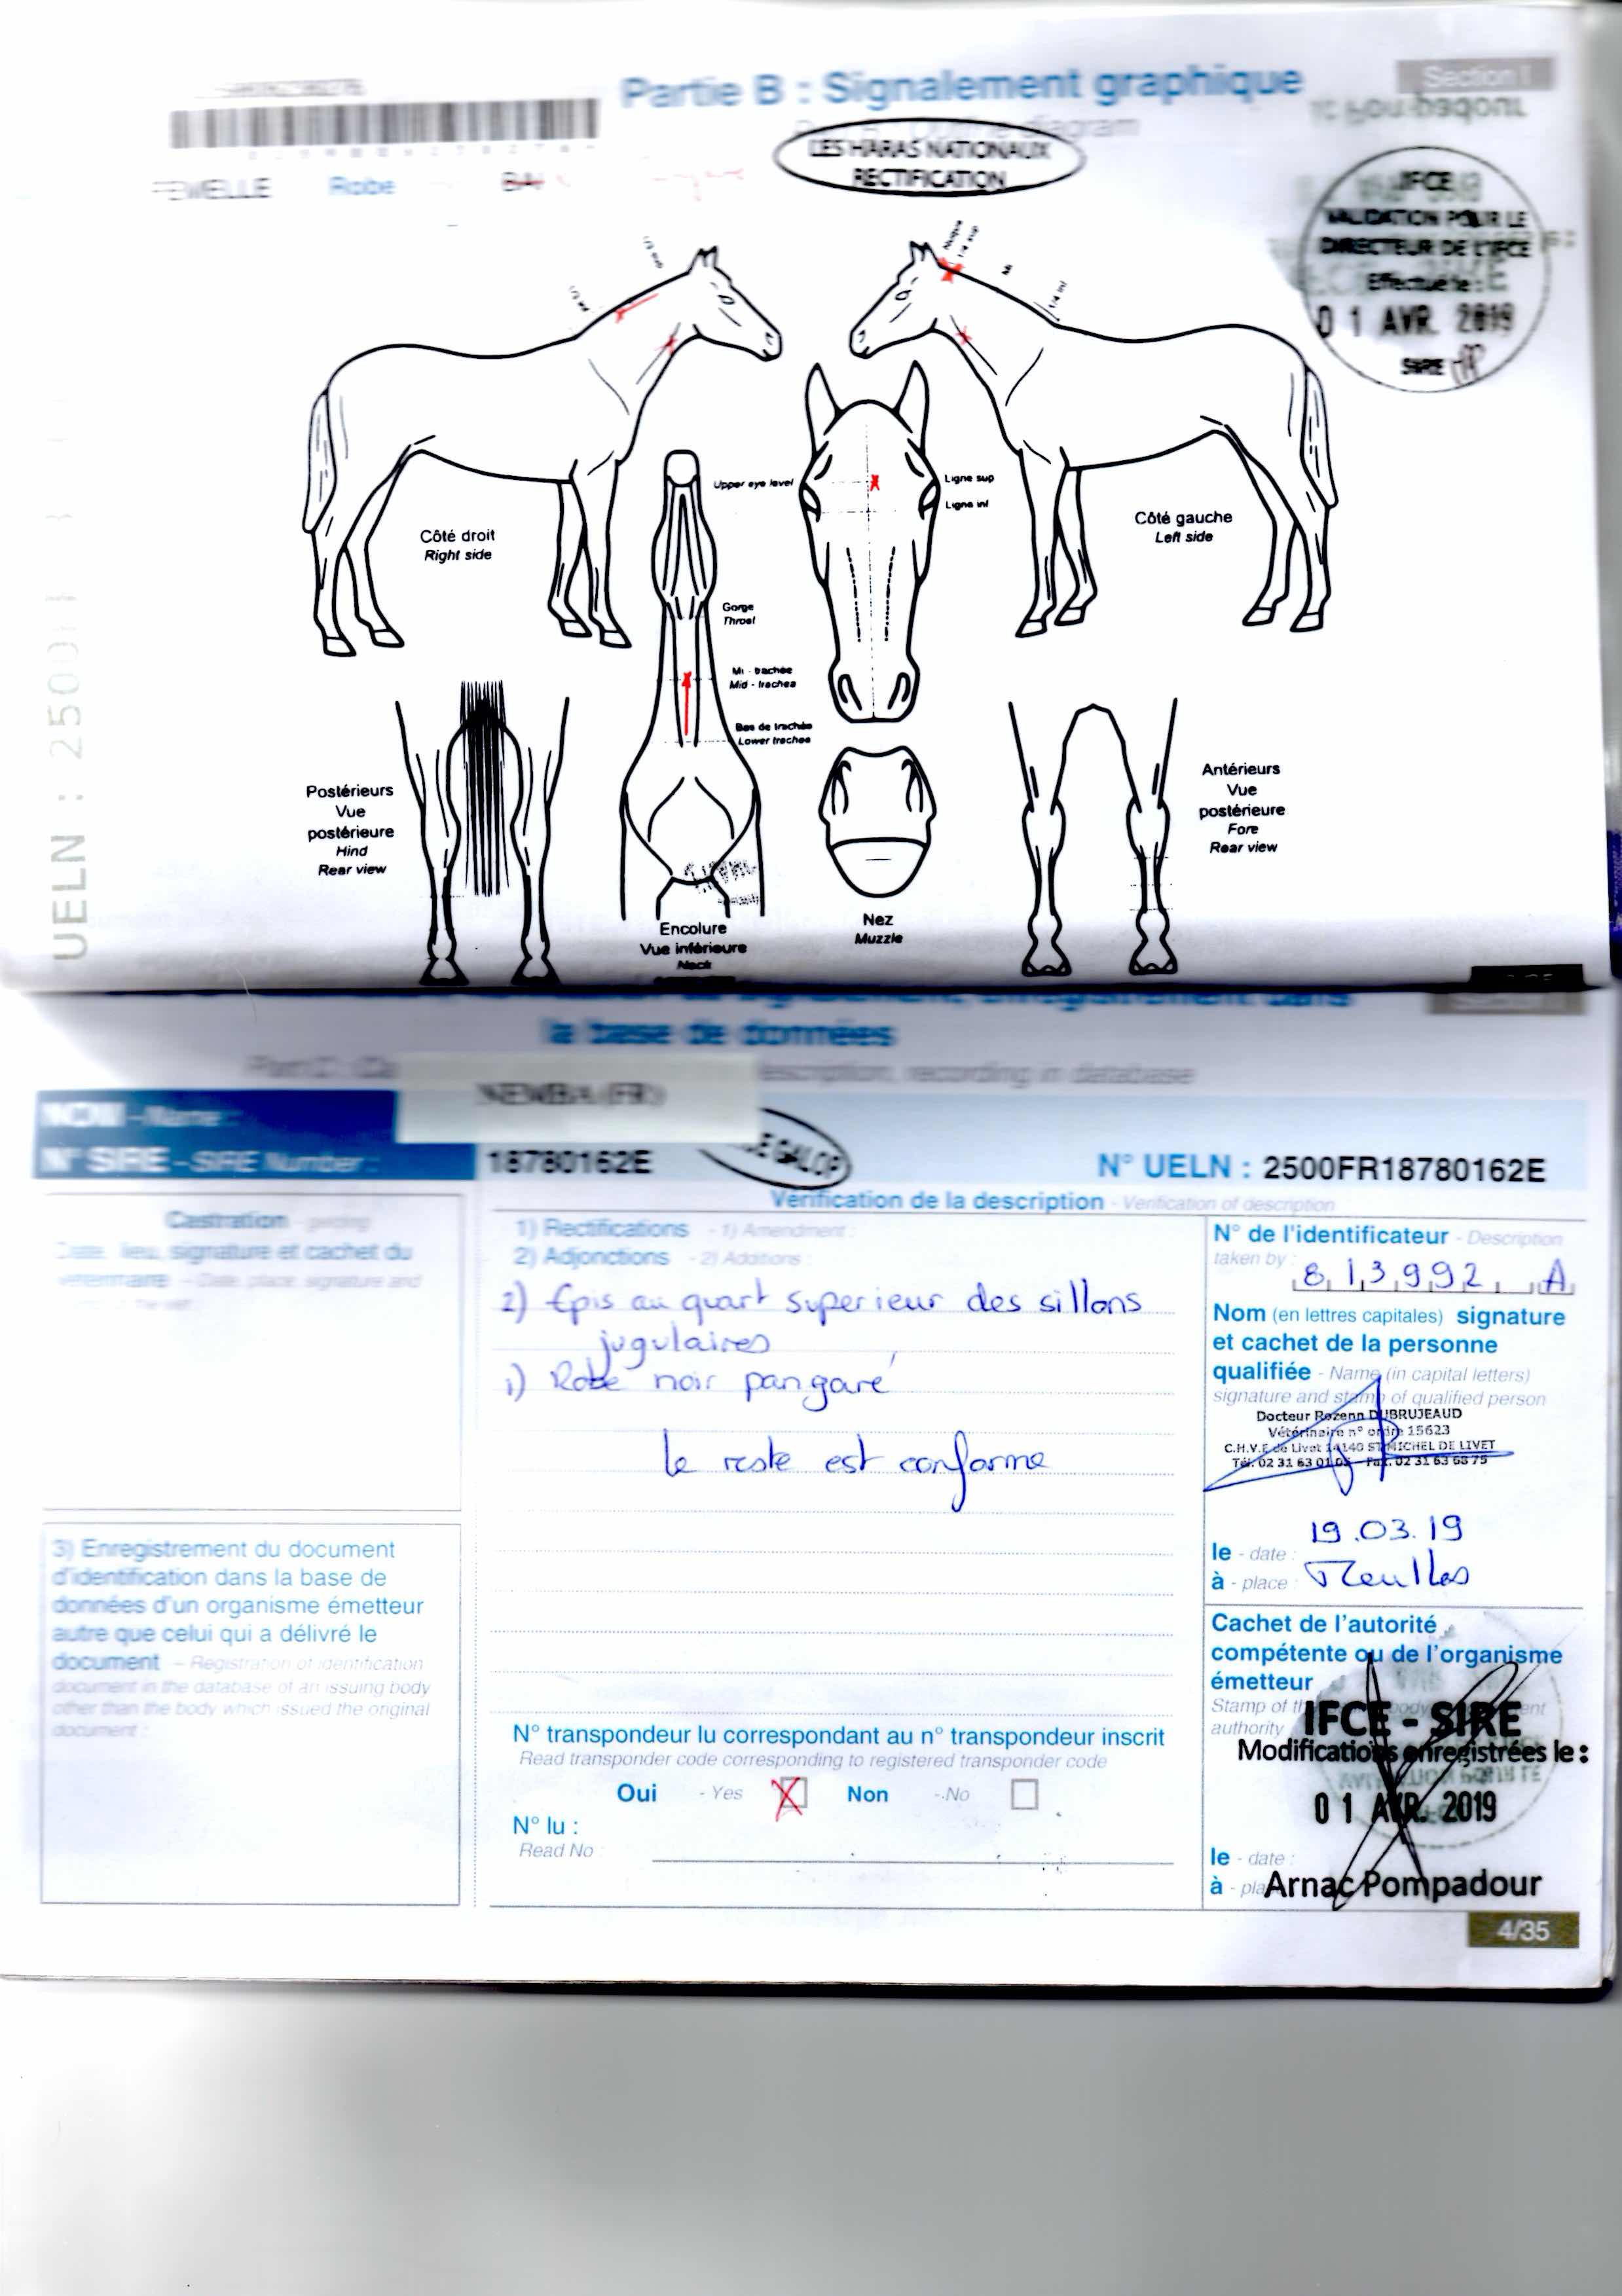 Partie B : Signalement graphique
Section I
LES HARAS NATIONAUX
RECTIFICATION
FEMELLE Robe BAI
IFCE
VALIDATION POUR LE
DIRECTEUR DE L'IFCE
Effectué le :
0 1 AVR. 2019
SIRE
1/3 sup
1/3 inf
Nuque
1/4 sup
Mi
1/4 inf
Côté droit
Right side
Upper eye level
Ligne sup
Ligne inf
Côté gauche
Left side
Gorge
Throat
Mi - trachée
Mid - trachea
Bas de trachée
Lower trachea
Postérieurs
Vue
postérieure
Hind
Rear view
Antérieurs
Vue
postérieure
Fore
Rear view
Encolure
Vue inférieure
Neck
Nez
Muzzle
UELN : 2500
la base de données
description, recording in database
NOM - Name :
NEMBA (FR)
N° SIRE - SIRE Number :
18780162E
DE GALOP
N° UELN : 2500FR18780162E
Vérification de la description - Verification of description
Castration - gelding
Date, lieu, signature et cachet du
vétérinaire - Date, place, signature and
1) Rectifications - 1) Amendment :
2) Adjonctions - 2) Additions :
2) Epis au quart superieur des sillons
jugulaires
1) Robe noir pangaré
le reste est conforme
N° de l'identificateur - Description
taken by :
813992 A
Nom (en lettres capitales) signature
et cachet de la personne
qualifiée - Name (in capital letters)
signature and stamp of qualified person
Docteur Rozenn DUBRUJEAUD
Vétérinaire n° ordre 15623
C.H.V.E de Livet 14140 ST MICHEL DE LIVET
Tél. 02 31 63 01 05 - Fax. 02 31 63 68 75
le - date : 19.03.19
à - place :
3) Enregistrement du document
d'identification dans la base de
données d'un organisme émetteur
autre que celui qui a délivré le
document - Registration of identification
document in the database of an issuing body
other than the body which issued the original
document :
Cachet de l'autorité
compétente ou de l'organisme
émetteur
Stamp of th
authority
IFCE - SIRE
Modifications enregistrées le :
0 1 AVR. 2019
N° transpondeur lu correspondant au n° transpondeur inscrit
Read transponder code corresponding to registered transponder code
Oui - Yes Non - No
N° lu :
Read No :
le - date :
à - pla
Arnac Pompadour
4/35